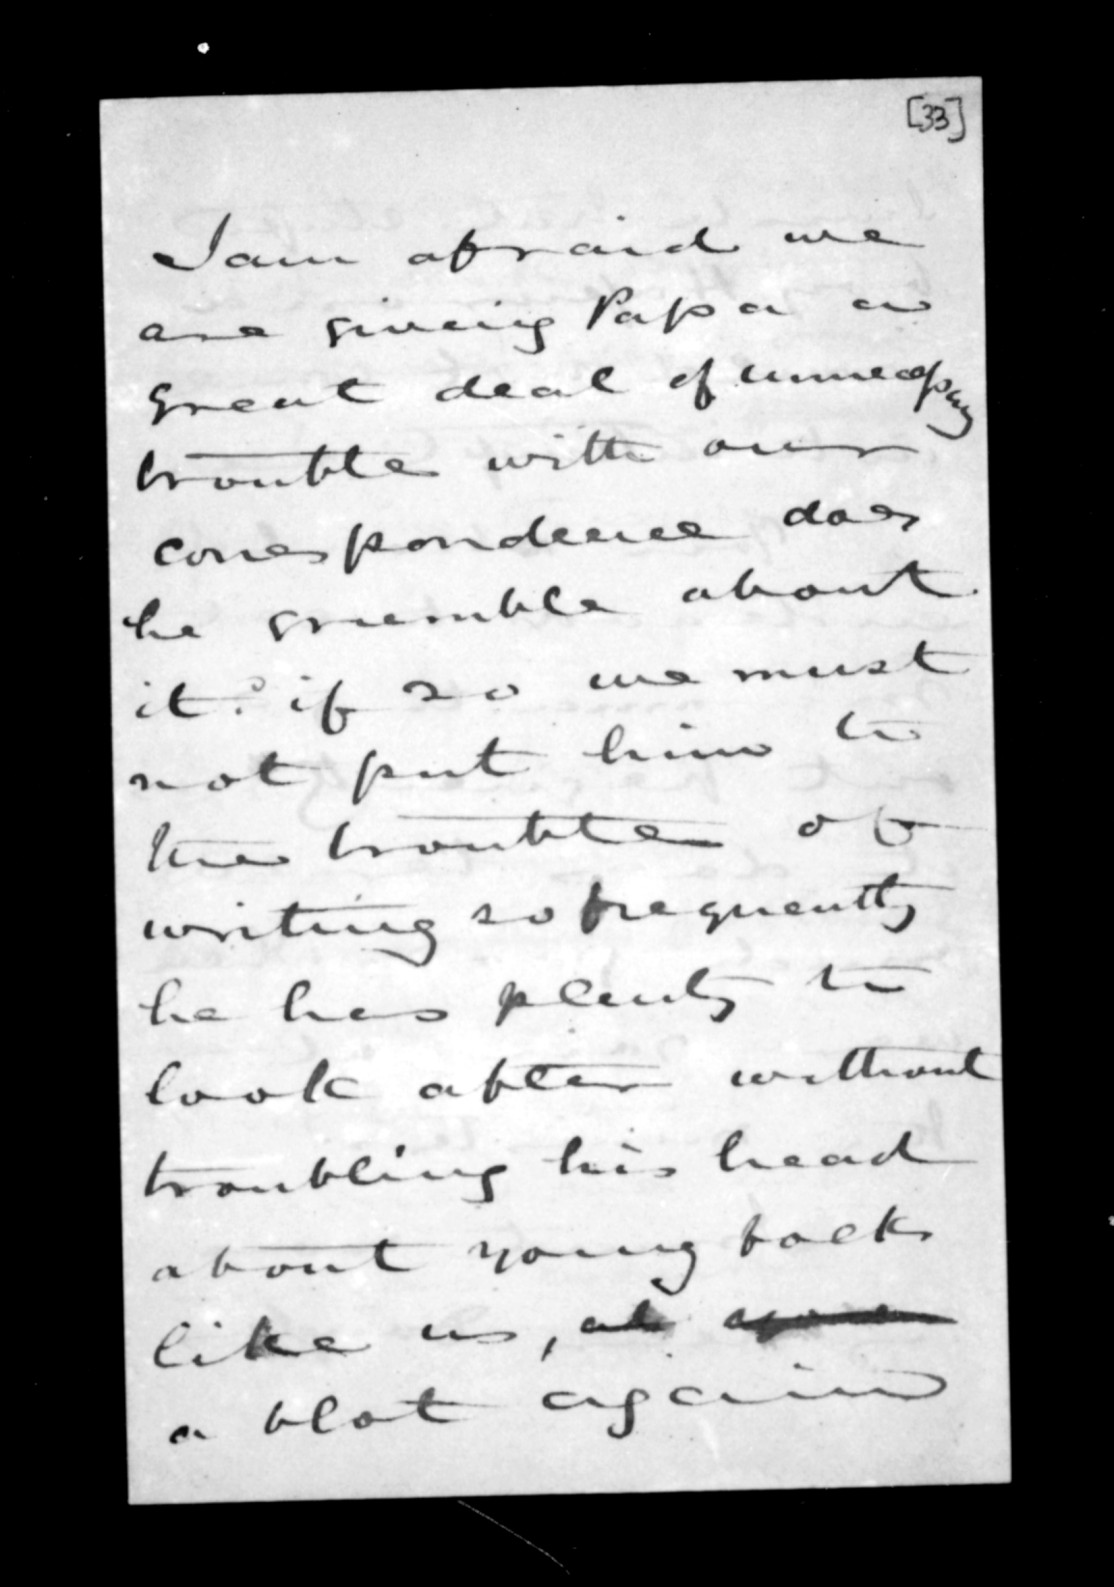 [33]
I am afraid we
are giving Papa a
great deal of unnecessary
trouble with our
correspondence does
he grumble about
it? if so we must
not put him to
the trouble of
writing so frequently
he has plenty to
look after without
troubling his head
about young folks
like us, ah
a blot again